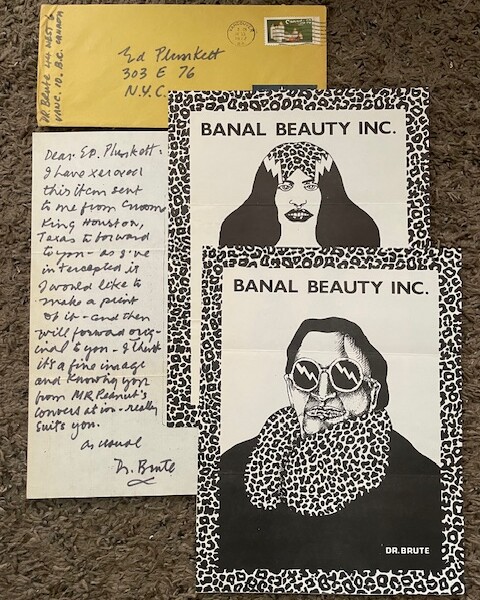 Dr. Brute 44 West 6
Vanc. 10. B.C. Canada
Ed Plunkett
303 E 76
N.Y.C.
Dear Ed. Plunkett:
I have xeroxed
this item sent
to me from
King Houston,
Texas to forward
to you - as I've
intercepted it
I would like to
make a print
of it - and then
will forward orig-
inal to you - I think
it's a fine image
and knowing you
from MR Peanut's
conversation - really
suits you.
as usual
Dr. Brute
BANAL BEAUTY INC.
BANAL BEAUTY INC.
DR. BRUTE